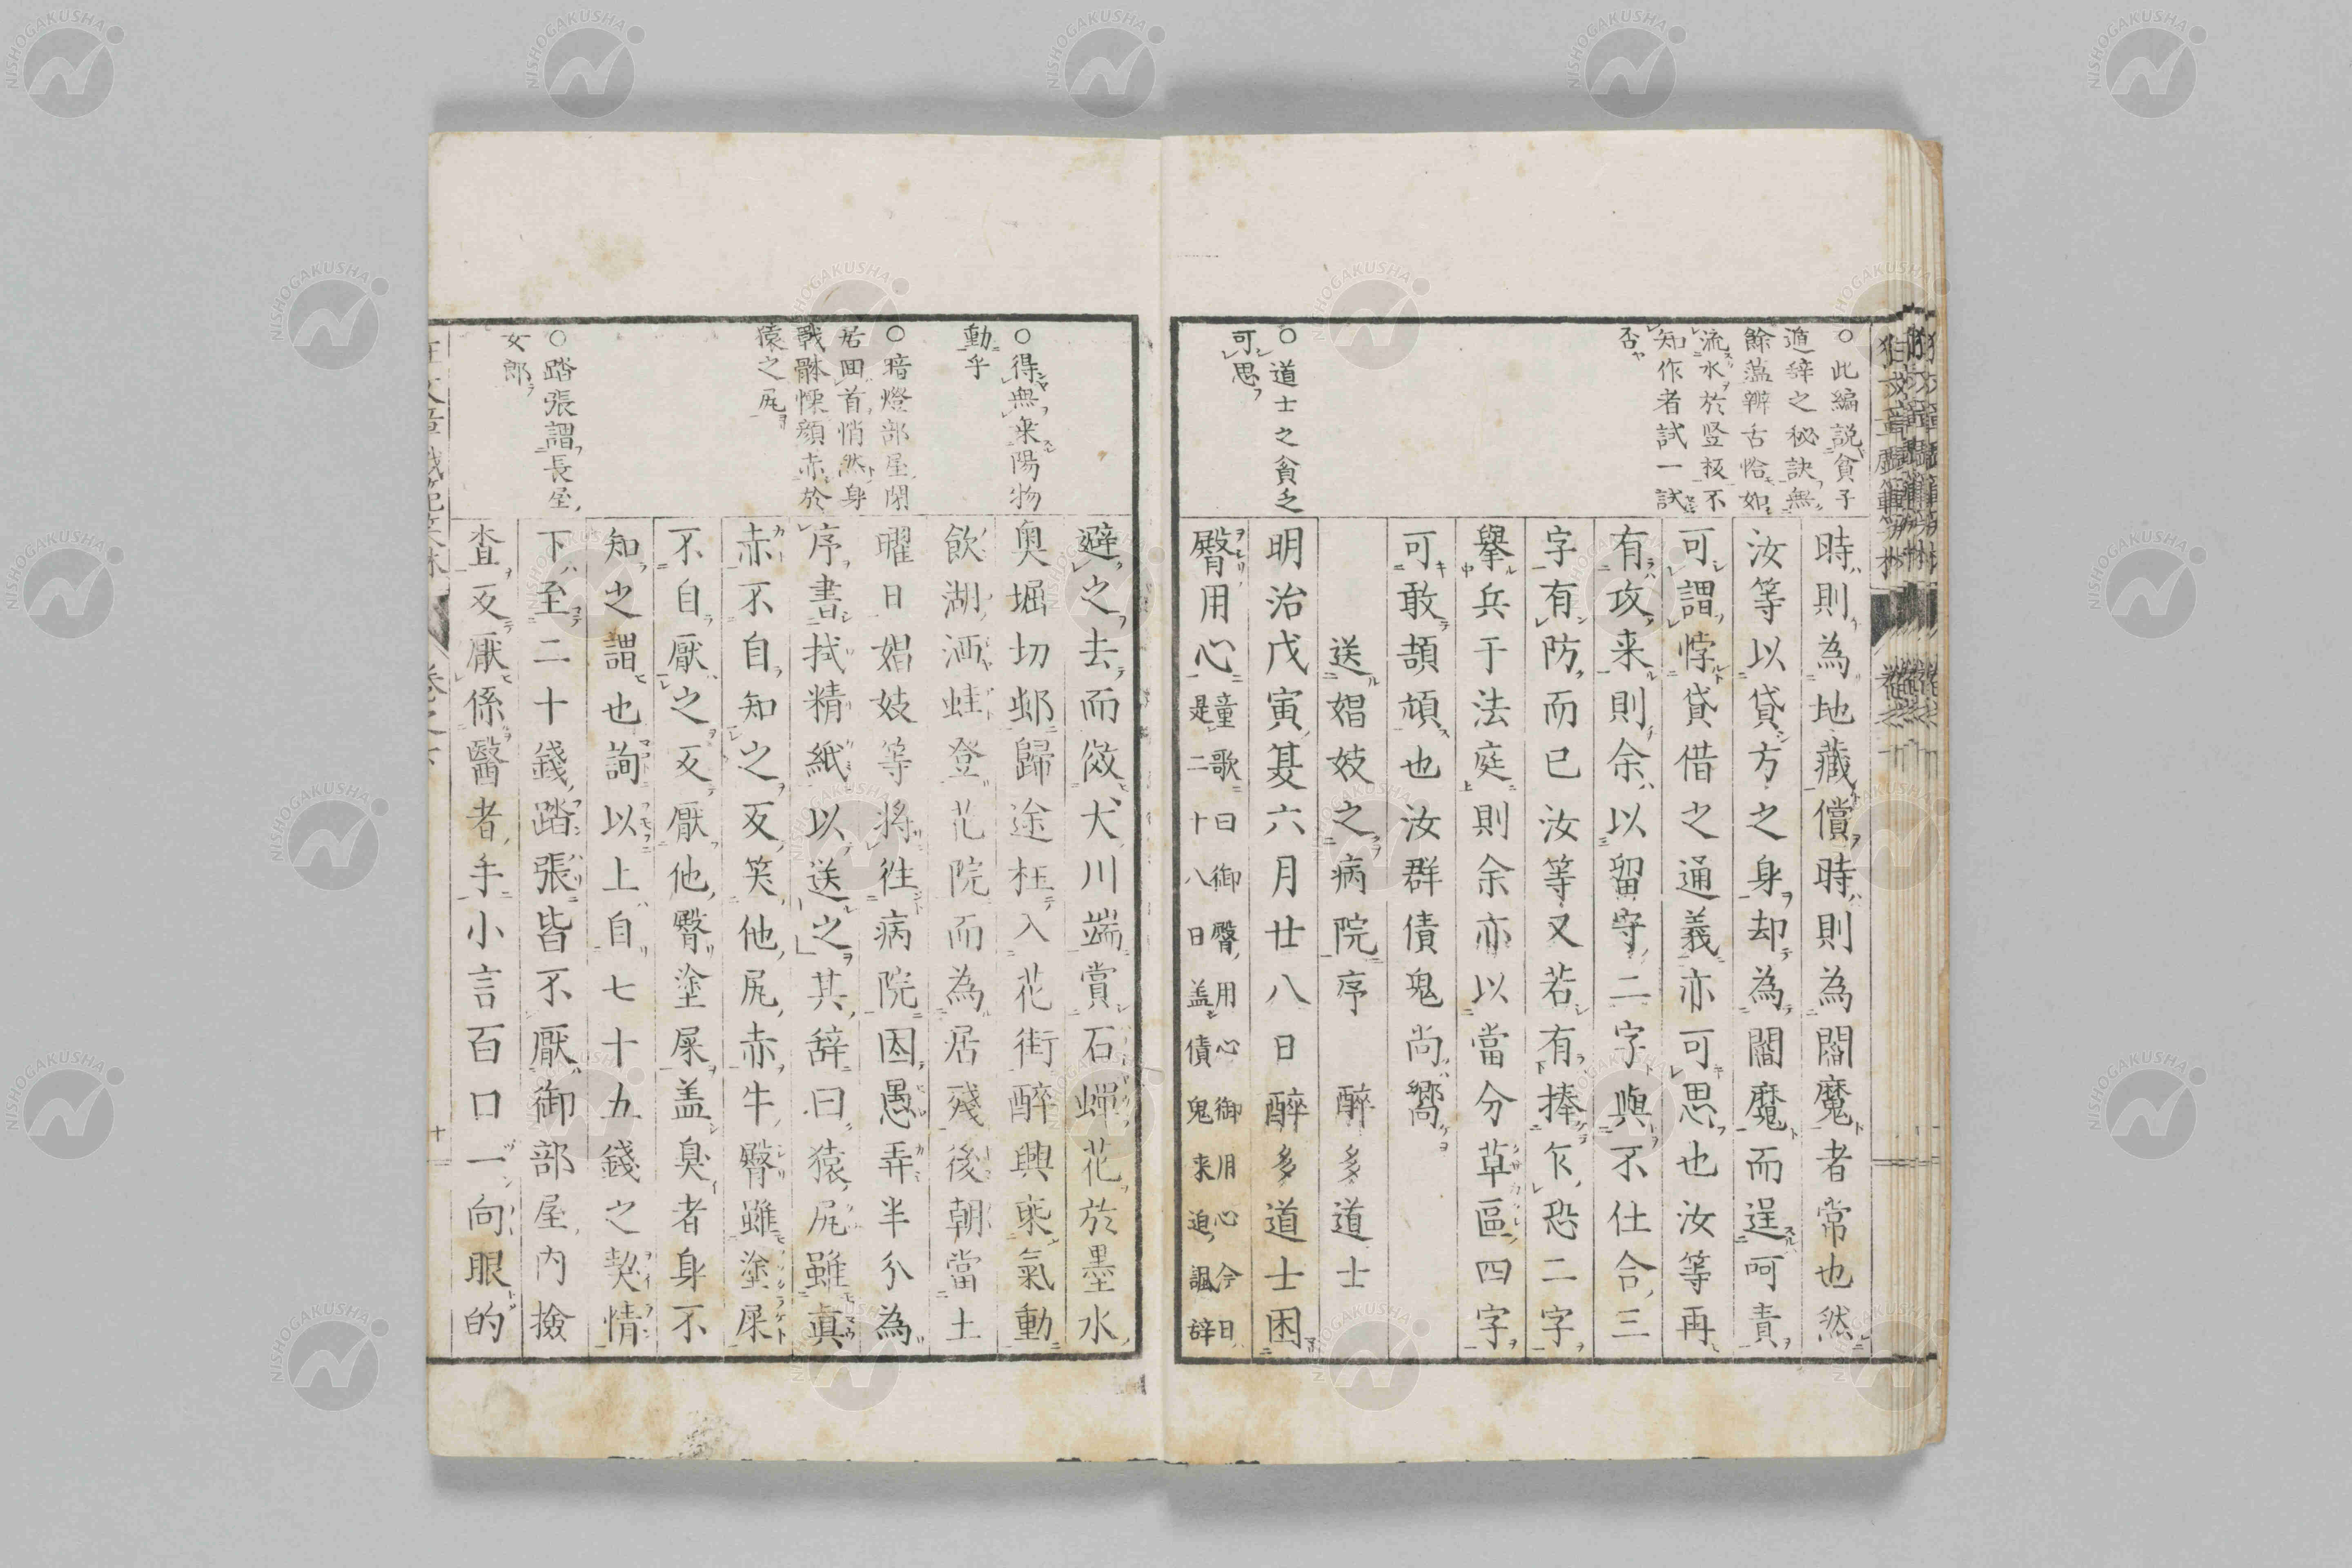 ○此編説貧子
遁辞之秘訣無
餘薀辨舌恰如
流水於竖板不
知作者試一試
否
時則為地藏償時則為閻魔者常也然
汝等以貸方之身却為閻魔而逞呵責
可謂悖貸借之通義亦可思也汝等再
有攻来則余以留守二字與不仕合三
字有防而已汝等又若有捧乍恐二字
擧兵于法庭則余亦以當分草區四字
可敢頡頏也汝群債鬼尚嚮
送娼妓之病院序　醉多道士
○道士之貧乏
可思
明治戊寅夏六月廿八日醉多道士困
臀用心
童歌曰御臀用心御用心今日
是二十八日盖債鬼来迫諷辞
避之去而倣犬川端賞石蟬花於墨水
○得無来陽物
動乎
奥堀切邨歸途枉入花街醉興乗氣動
飲湖洒蛙登花院而為居殘後朝當土
○暗燈部屋閉
居回首悄然身
戰骵慄顔赤於
猿之尻
曜日娼妓等将徃病院因愚弄半分為
序書拭精紙以送之其辞曰猿尻雖眞
赤不自知之反笑他尻赤牛臀雖塗屎
不自厭之反厭他臀塗屎盖臭者身不
知之謂也詢以上自七十五錢之契情
○踏張謂長屋
女郎
下至二十錢踏張皆不厭御部屋内撿
査反厭係醫者手小言百口一向眼的